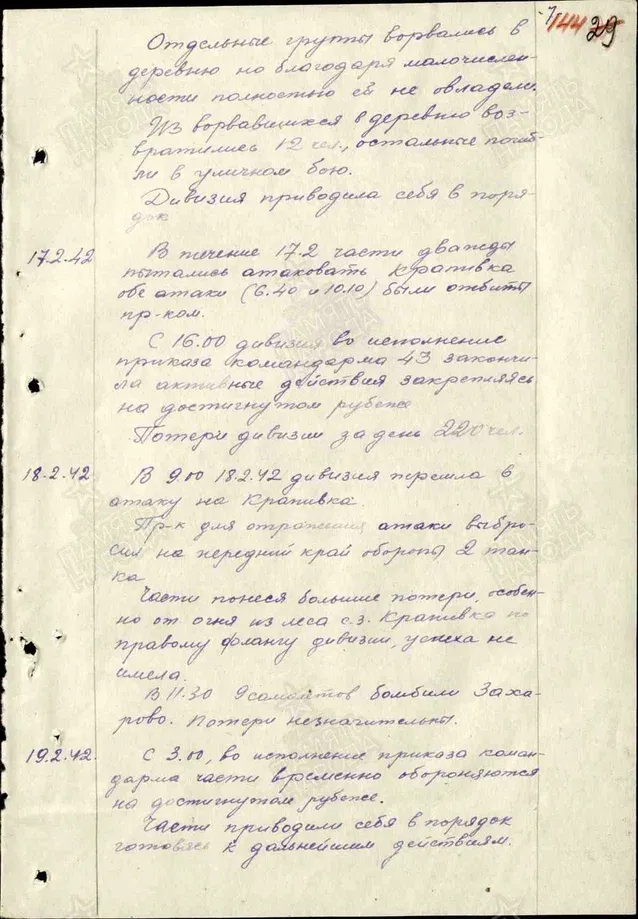 144 29
Отдельные группы ворвались в
деревню но благодаря малочислен-
ности полностью ей не овладели.
Из ворвавшихся в деревню воз-
вратились 12 чел., остальные погиб-
ли в уличном бою.
Дивизия приводила себя в поря-
док
17.2.42 В течение 17.2 части дважды
пытались атаковать Крапивка
обе атаки (6.40 и 10.10) были отбиты
пр-ком.
С 16.00 дивизия во исполнение
приказа командарма 43 закончи-
ла активные действия закрепляясь
на достигнутом рубеже
Потери дивизии за день 220 чел.
18.2.42 В 9.00 18.2.42 дивизия перешла в
атаку на Крапивка.
Пр-к для отражения атаки выбро-
сил на передний край обороны 2 тан-
ка
Части понеся большие потери, особен-
но от огня из леса с.з. Крапивка по
правому флангу дивизии, успеха не
имела.
В 11.30 9 самолетов бомбили Заха-
рово. Потери незначительны.
19.2.42. С 3.00, во исполнение приказа коман-
дарма части временно обороняются
на достигнутом рубеже.
Части приводили себя в порядок
готовясь к дальнейшим действиям.
ПАМЯТЬ НАРОДА